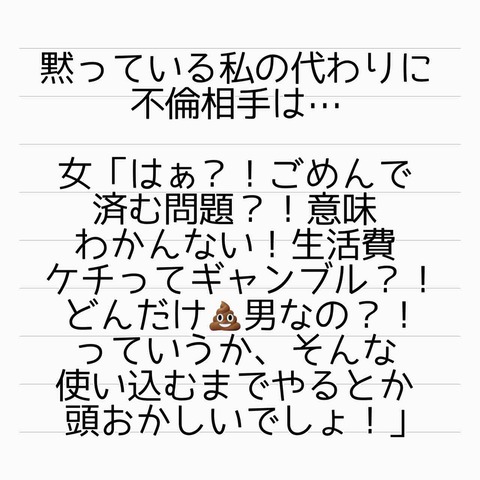 黙っている私の代わりに
不倫相手は…
女「はぁ？！ごめんで
済む問題？！意味
わかんない！生活費
ケチってギャンブル？！
どんだけ💩男なの？！
っていうか、そんな
使い込むまでやるとか
頭おかしいでしょ！」